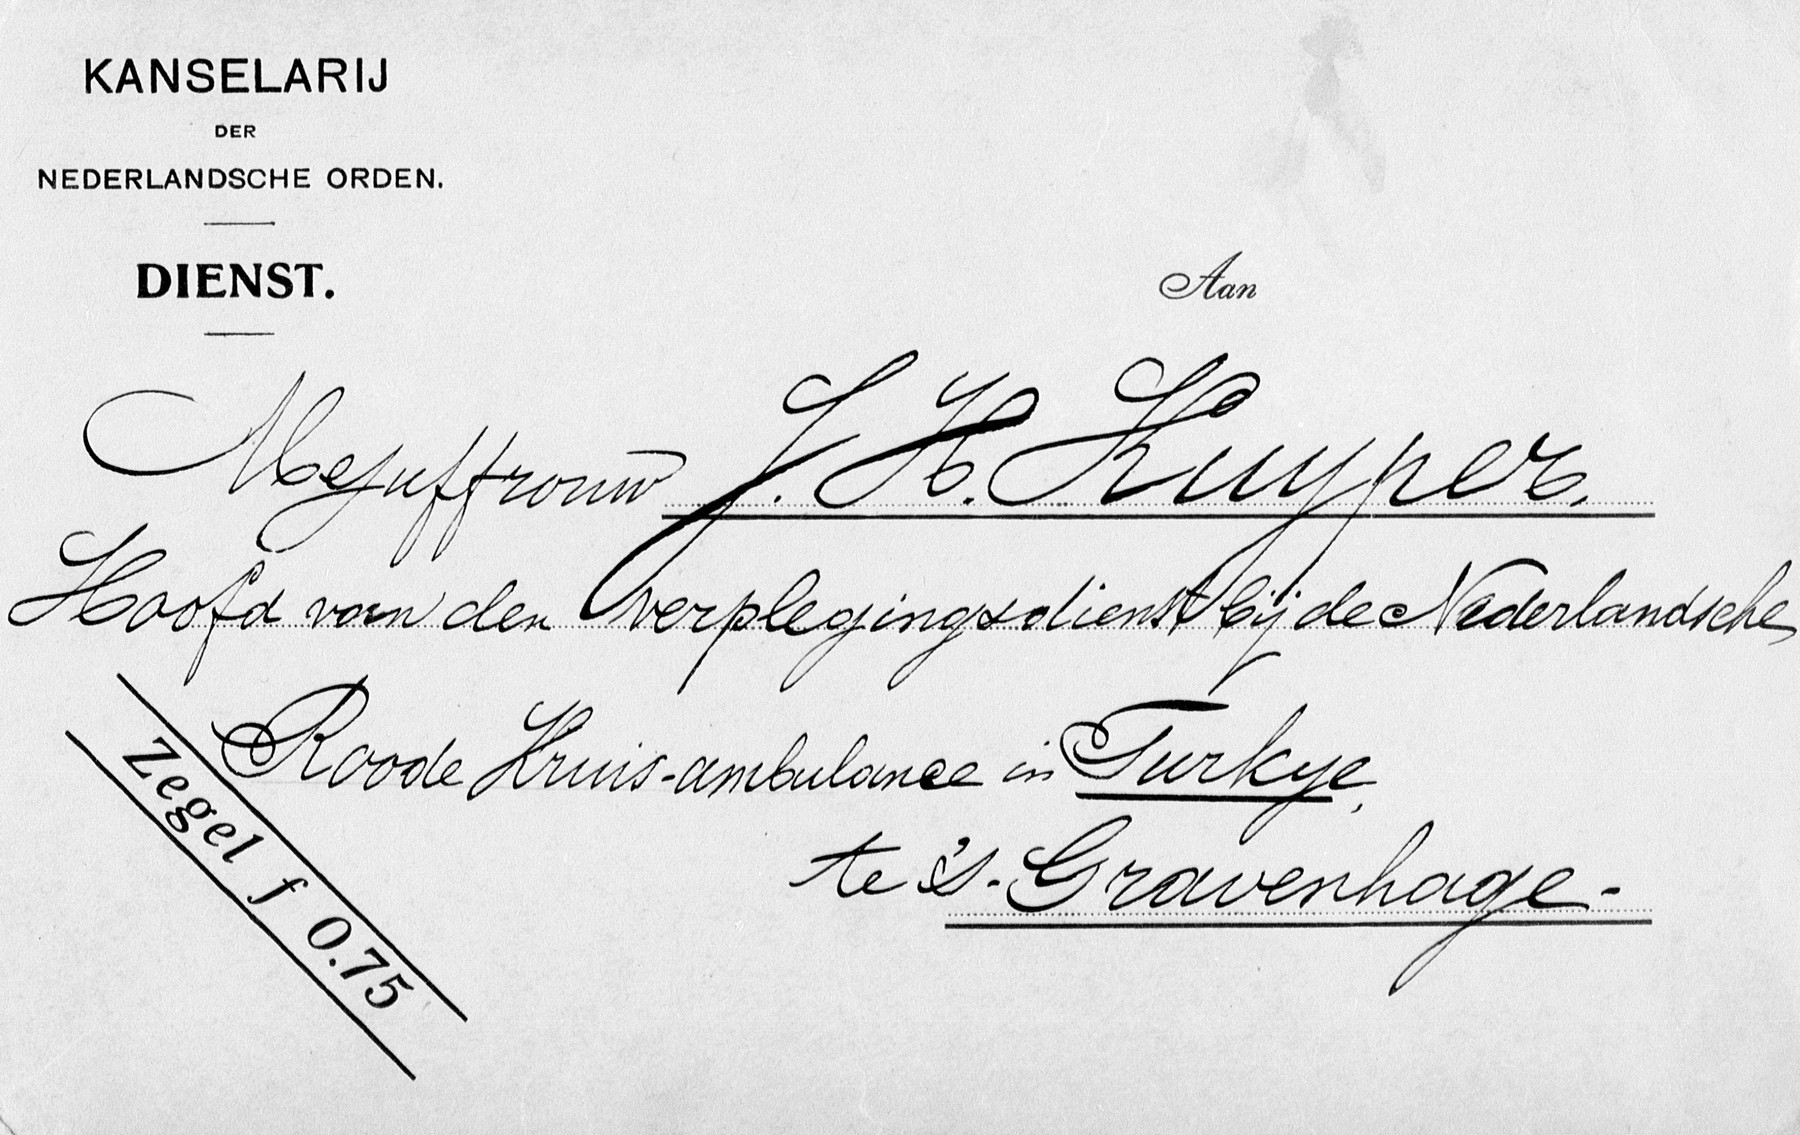 KANSELARIJ
DER
NEDERLANDSCHE ORDEN.
DIENST.
Aan
Mejuffrouw J. H. Kuyper.
Hoofd van den verplegingsdienst bij de Nederlandsche
Roode Kruis-ambulance in Turkye,
te 's-Gravenhage-
Zegel f 0.75